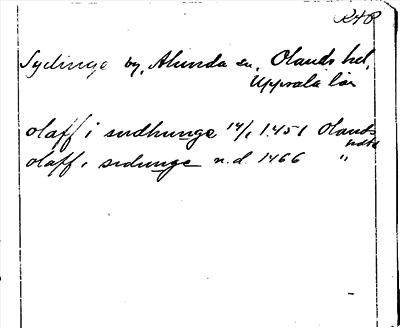 248
Sydinge by, Alunda sn, Olands hd,
Uppsala län
olaff i sudhunge 14/1 1451 Olands
olaff i sidunge n.d. 1466 "